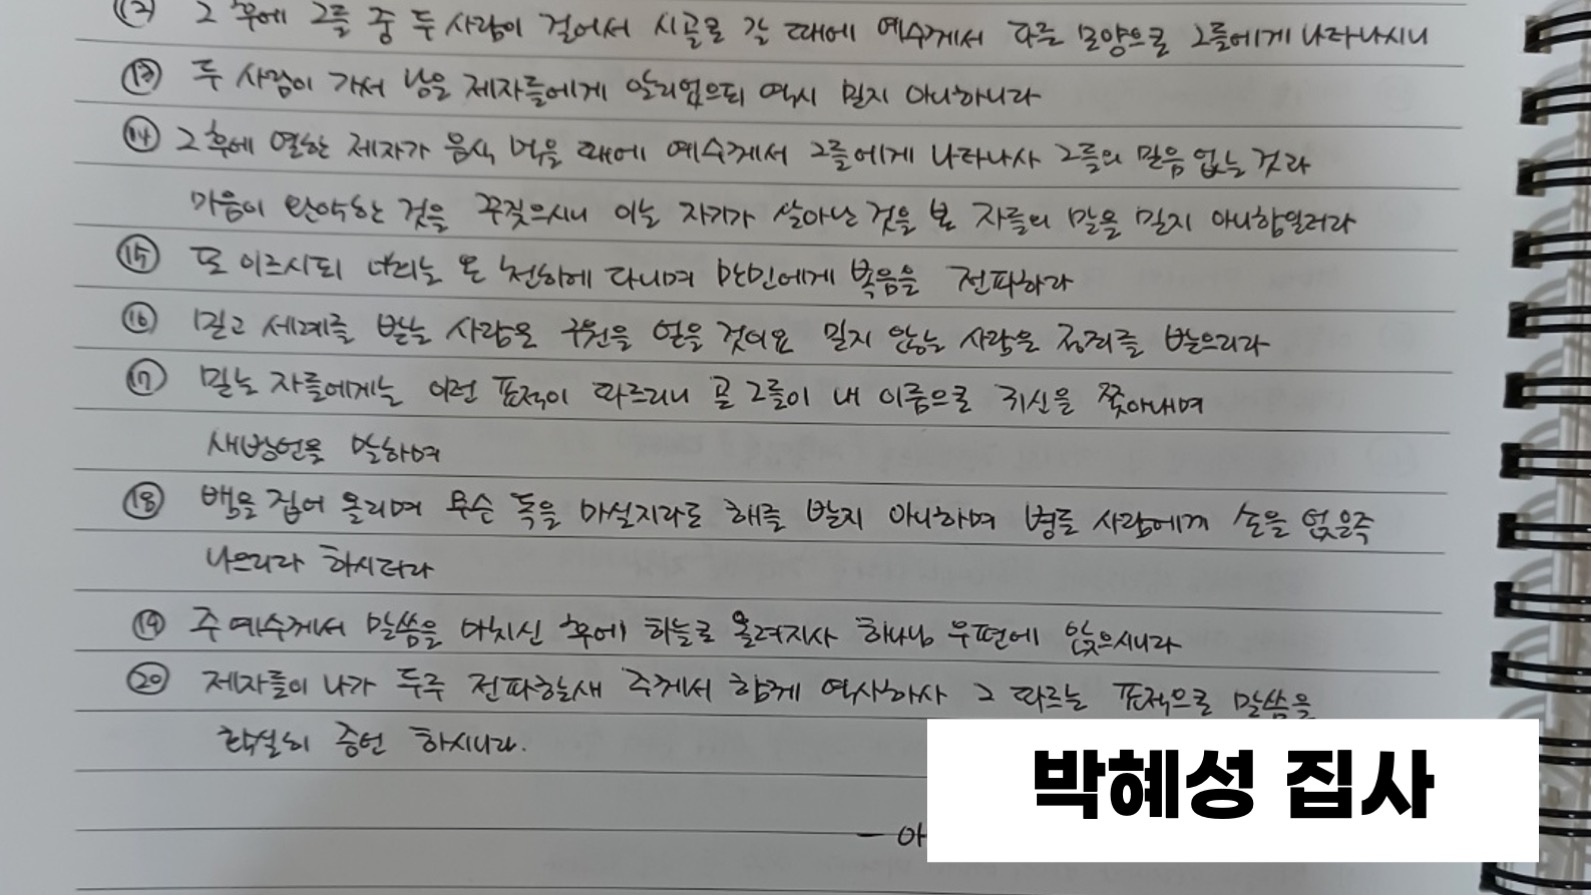 (12) 그 후에 그들 중 두 사람이 걸어서 시골로 갈 때에 예수께서 다른 모양으로 그들에게 나타나시니
(13) 두 사람이 가서 남은 제자들에게 알리었으되 역시 믿지 아니하니라
(14) 그 후에 열한 제자가 음식 먹을 때에 예수께서 그들에게 나타나사 그들의 믿음 없는 것과
마음이 완악한 것을 꾸짖으시니 이는 자기가 살아난 것을 본 자들의 말을 믿지 아니함일러라
(15) 또 이르시되 너희는 온 천하에 다니며 만민에게 복음을 전파하라
(16) 믿고 세례를 받는 사람은 구원을 얻을 것이요 믿지 않는 사람은 정죄를 받으리라
(17) 믿는 자들에게는 이런 표적이 따르리니 곧 그들이 내 이름으로 귀신을 쫓아내며
새방언을 말하며
(18) 뱀을 집어 올리며 무슨 독을 마실지라도 해를 받지 아니하며 병든 사람에게 손을 얹은즉
나으리라 하시더라
(19) 주 예수께서 말씀을 마치신 후에 하늘로 올려지사 하나님 우편에 앉으시니라
(20) 제자들이 나가 두루 전파할새 주께서 함께 역사하사 그 따르는 표적으로 말씀을
확실히 증언 하시니라.
- 아
박혜성 집사